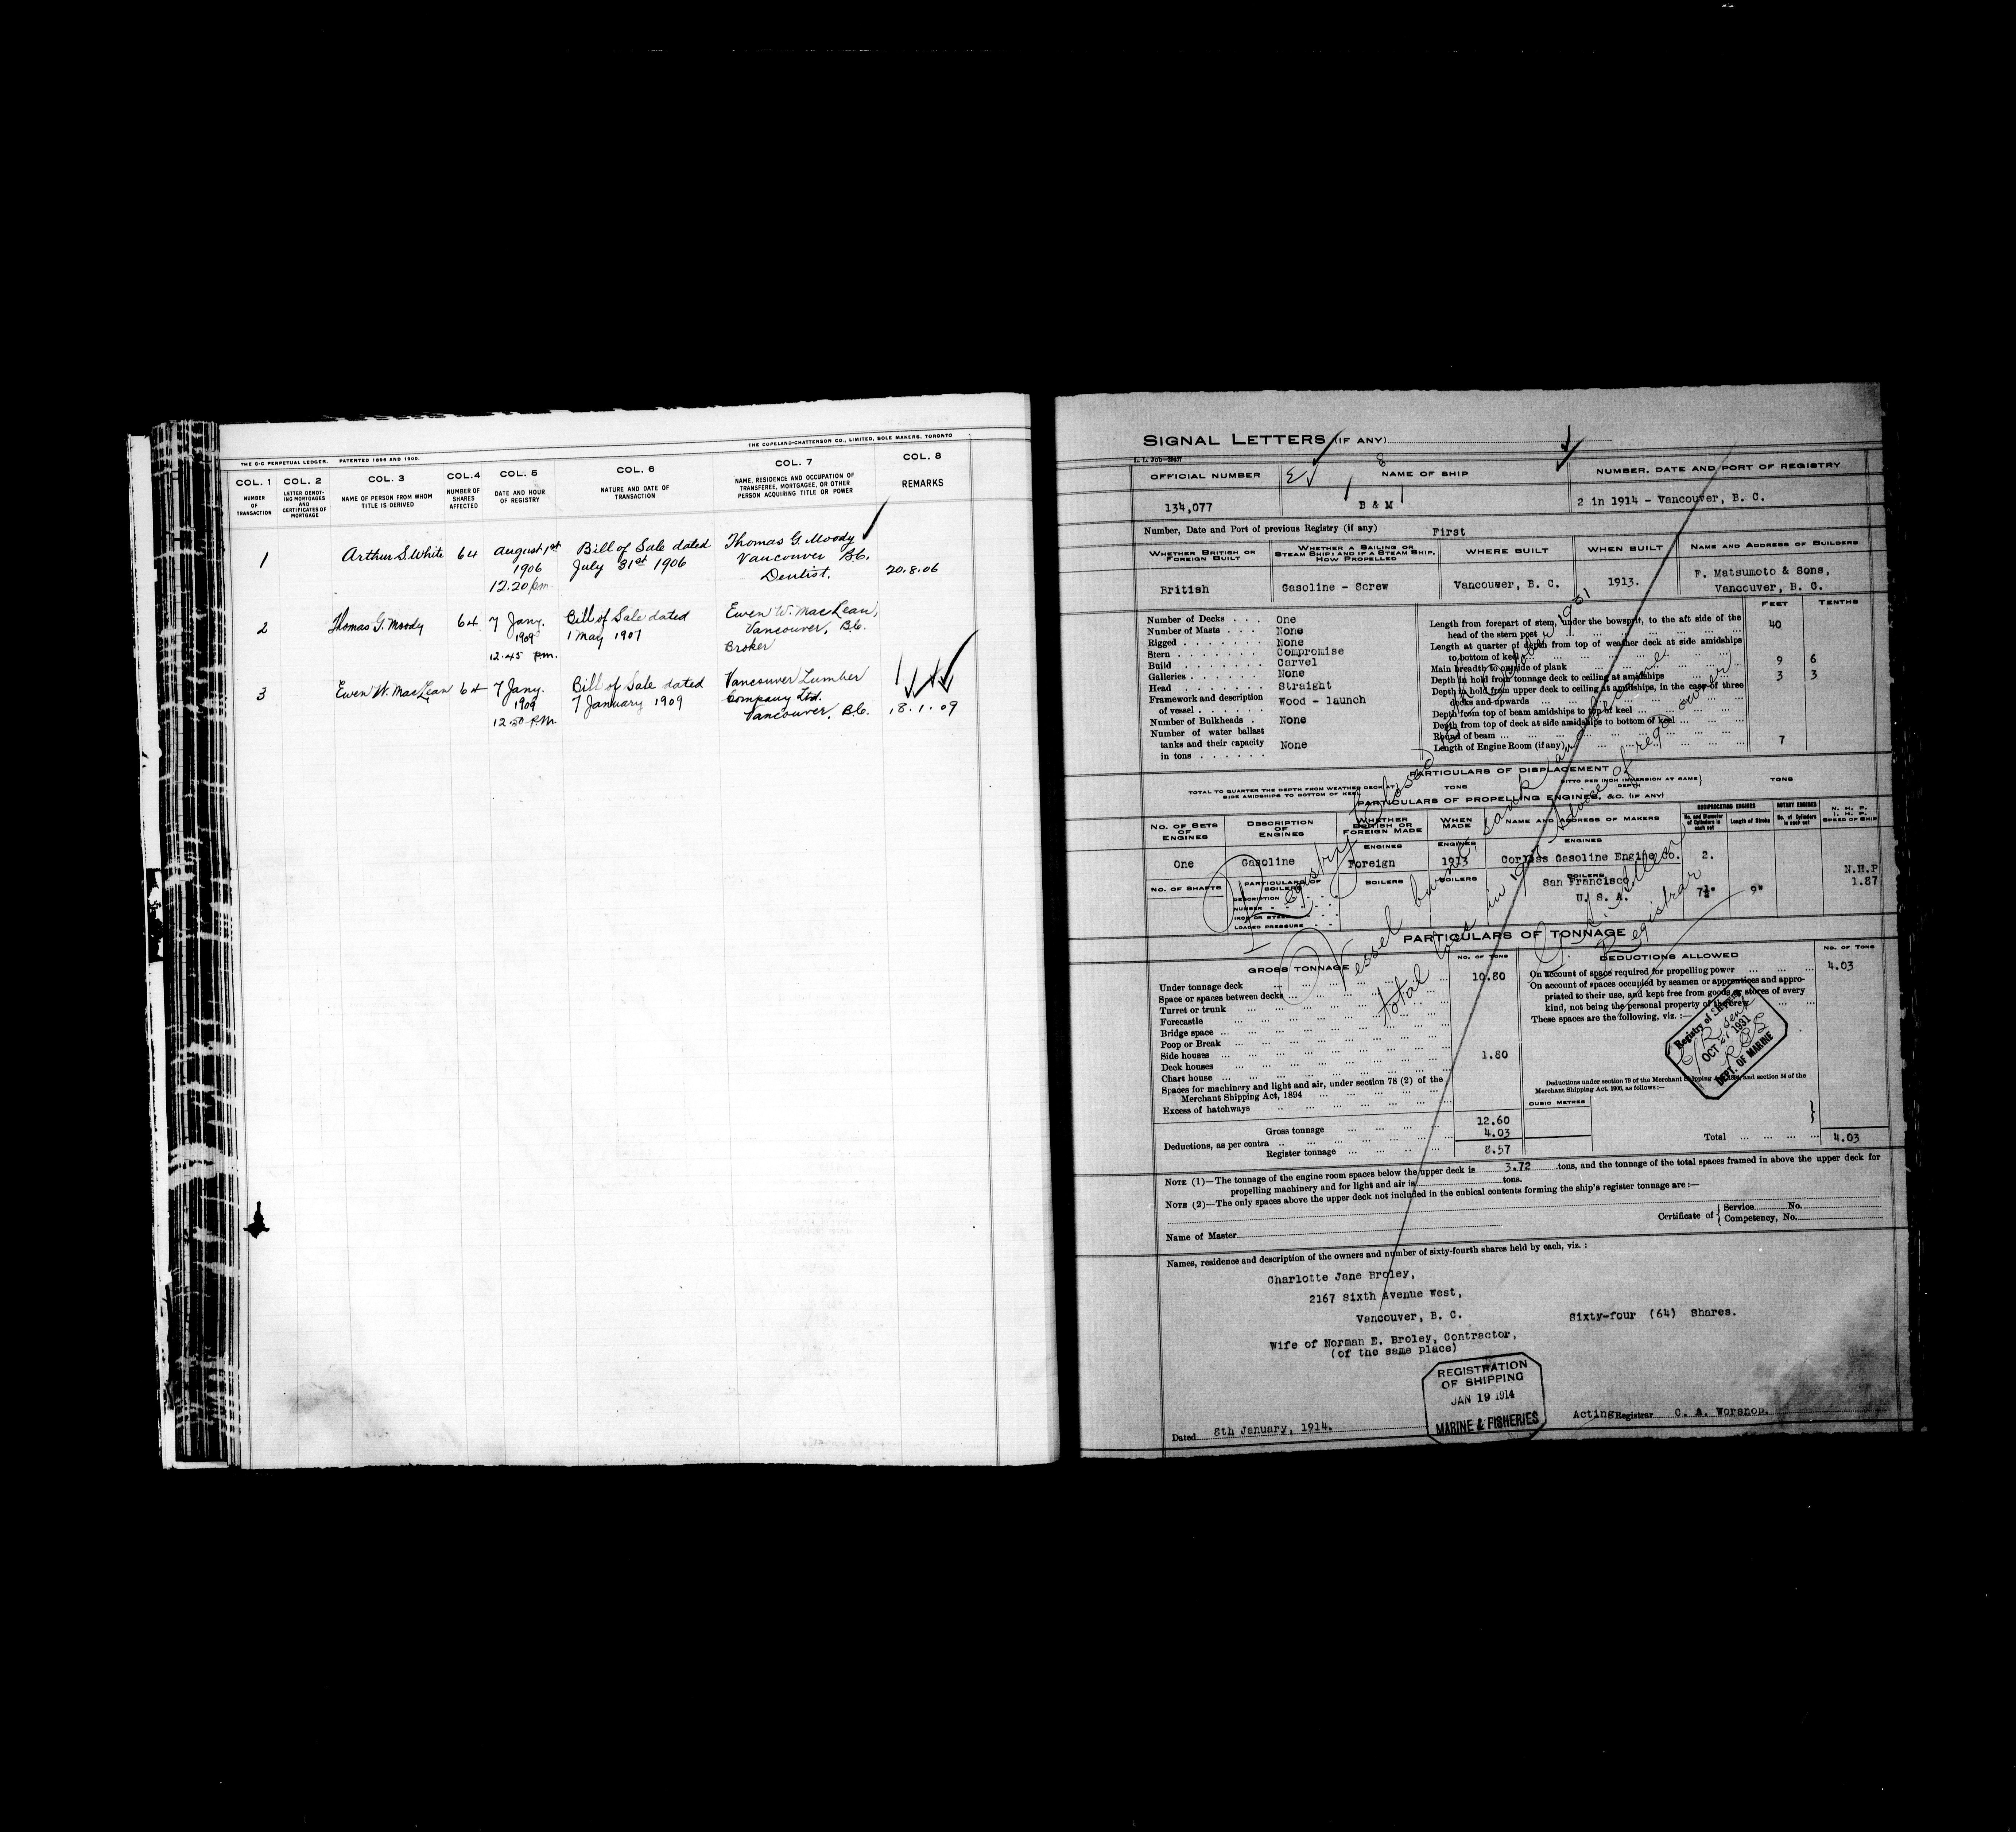 THE C-C PERPETUAL LEDGER. PATENTED 1896 AND 1900.
THE COPELAND-CHATTERSON CO., LIMITED, SOLE MAKERS, TORONTO
COL. 1 COL. 2 COL. 3 COL. 4 COL. 5 COL. 6 COL. 7 COL. 8
NUMBER OF TRANSACTION
LETTER DENOTING MORTGAGES AND CERTIFICATES OF MORTGAGE
NAME OF PERSON FROM WHOM TITLE IS DERIVED
NUMBER OF SHARES AFFECTED
DATE AND HOUR OF REGISTRY
NATURE AND DATE OF TRANSACTION
NAME, RESIDENCE AND OCCUPATION OF TRANSFEREE, MORTGAGEE, OR OTHER PERSON ACQUIRING TITLE OR POWER
REMARKS
1 Arthur S. White 64 August 1st Bill of Sale dated Thomas G. Moody
1906 July 31st 1906 Vancouver B.C.
12.20 pm. Dentist. 20.8.06
2 Thomas G. Moody 64 7 Jany. Bill of Sale dated Ewen W. MacLean,
1909 1 May 1907 Vancouver, B.C.
12.45 pm. Broker
3 Ewen W. MacLean 64 7 Jany. Bill of Sale dated Vancouver Lumber
1909 7 January 1909 Company Ltd.
12.50 P.M. Vancouver, B.C. 18.1.09
SIGNAL LETTERS (IF ANY)
OFFICIAL NUMBER NAME OF SHIP NUMBER, DATE AND PORT OF REGISTRY
134,077 B & M 2 in 1914 - Vancouver, B. C.
Number, Date and Port of previous Registry (if any) First
WHETHER BRITISH OR FOREIGN BUILT
WHETHER A SAILING OR STEAM SHIP; AND IF A STEAM SHIP, HOW PROPELLED
WHERE BUILT
WHEN BUILT
NAME AND ADDRESS OF BUILDERS
British Gasoline - Screw Vancouver, B. C. 1913. F. Matsumoto & Sons,
Vancouver, B. C.
FEET TENTHS
Number of Decks One
Number of Masts None
Rigged None
Stern Compromise
Build Carvel
Galleries None
Head Straight
Framework and description
of vessel Wood - launch
Number of Bulkheads None
Number of water ballast
tanks and their capacity
in tons None
Length from forepart of stem, under the bowsprit, to the aft side of the
head of the stern post 40
Length at quarter of depth from top of weather deck at side amidships
to bottom of keel
Main breadth to outside of plank 9 6
Depth in hold from tonnage deck to ceiling at amidships 3 3
Depth in hold from upper deck to ceiling at amidships, in the case of three
decks and upwards
Depth from top of beam amidships to top of keel
Depth from top of deck at side amidships to bottom of keel
Round of beam
Length of Engine Room (if any) 7
PARTICULARS OF DISPLACEMENT
TOTAL TO QUARTER THE DEPTH FROM WEATHER DECK AT SIDE AMIDSHIPS TO BOTTOM OF KEEL TONS
DITTO PER INCH IMMERSION AT SAME DEPTH TONS
PARTICULARS OF PROPELLING ENGINES, &C. (IF ANY)
NO. OF SETS OF ENGINES
DESCRIPTION OF ENGINES
WHETHER BRITISH OR FOREIGN MADE
WHEN MADE
NAME AND ADDRESS OF MAKERS
RECIPROCATING ENGINES
No. and Diameter of Cylinders in each set
Length of Stroke
ROTARY ENGINES
No. of Cylinders in each set
N. H. P.
I. H. P.
SPEED OF SHIP
ENGINES ENGINES ENGINES
One Gasoline Foreign 1913 Corliss Gasoline Engine Co. 2.
San Francisco
U. S. A. 7½" 9" N.H.P
1.87
NO. OF SHAFTS
PARTICULARS OF BOILERS
BOILERS BOILERS BOILERS
DESCRIPTION
NUMBER
IRON OR STEEL
LOADED PRESSURE
PARTICULARS OF TONNAGE
GROSS TONNAGE NO. OF TONS
Under tonnage deck 10.80
Space or spaces between decks
Turret or trunk
Forecastle
Bridge space
Poop or Break
Side houses 1.80
Deck houses
Chart house
Spaces for machinery and light and air, under section 78 (2) of the
Merchant Shipping Act, 1894
Excess of hatchways
Gross tonnage 12.60
Deductions, as per contra 4.03
Register tonnage 8.57
DEDUCTIONS ALLOWED NO. OF TONS
On account of space required for propelling power 4.03
On account of spaces occupied by seamen or apprentices and appro-
priated to their use, and kept free from goods or stores of every
kind, not being the personal property of the crew
These spaces are the following, viz. :—
Deductions under section 79 of the Merchant Shipping Act, 1894, and section 54 of the
Merchant Shipping Act. 1906, as follows:—
CUBIC METRES
Total 4.03
Registry closed October 1931
Vessel burnt, sank and became
total loss in advice of regd owner
Registrar
Registry of Shipping
OCT 1931
DEPT. OF MARINE
NOTE (1)—The tonnage of the engine room spaces below the upper deck is 3.72 tons, and the tonnage of the total spaces framed in above the upper deck for
propelling machinery and for light and air is tons.
NOTE (2)—The only spaces above the upper deck not included in the cubical contents forming the ship's register tonnage are:—
Name of Master
Certificate of { Service No.
Competency, No.
Names, residence and description of the owners and number of sixty-fourth shares held by each, viz. :
Charlotte Jane Broley,
2167 Sixth Avenue West,
Vancouver, B. C. Sixty-four (64) Shares.
Wife of Norman E. Broley, Contractor,
(of the same place)
REGISTRATION
OF SHIPPING
JAN 19 1914
MARINE & FISHERIES
Dated 8th January, 1914. Acting Registrar C. A. Worsnop.